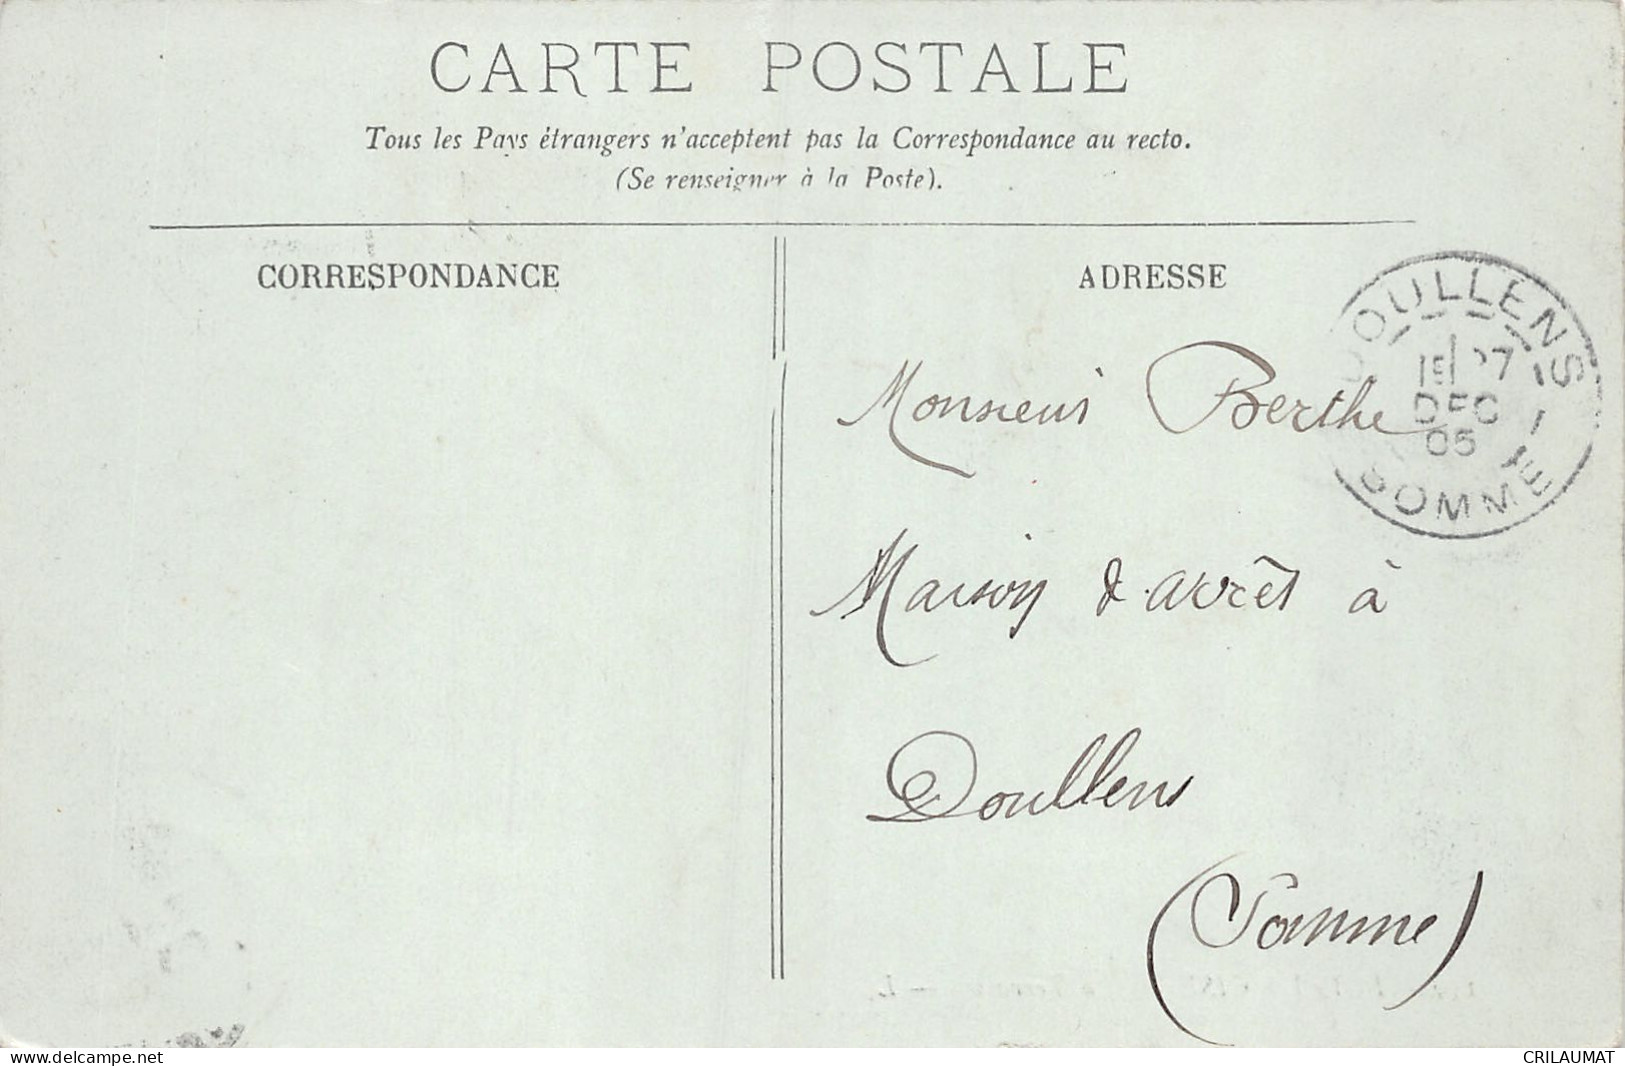 CARTE POSTALE
Tous les Pays étrangers n'acceptent pas la Correspondance au recto.
(Se renseigner à la Poste).
CORRESPONDANCE
ADRESSE
DOULLENS
DEC
05
SOMME
Monsieur Berthe
Maison d'arrêt à
Doullens
(Somme)
delcampe.net
CRILAUMAT